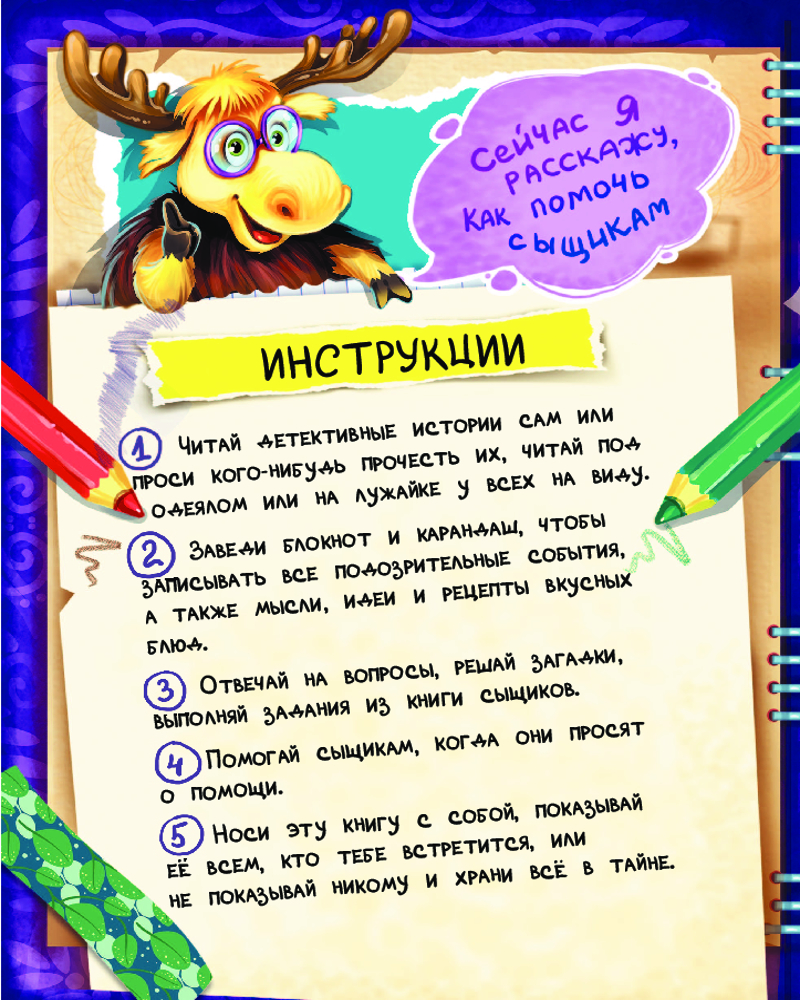 Сейчас я
расскажу,
как помочь
сыщикам
ИНСТРУКЦИИ
1 Читай детективные истории сам или
проси кого-нибудь прочесть их, читай под
одеялом или на лужайке у всех на виду.
2 Заведи блокнот и карандаш, чтобы
записывать все подозрительные события,
а также мысли, идеи и рецепты вкусных
блюд.
3 Отвечай на вопросы, решай загадки,
выполняй задания из книги сыщиков.
4 Помогай сыщикам, когда они просят
о помощи.
5 Носи эту книгу с собой, показывай
её всем, кто тебе встретится, или
не показывай никому и храни всё в тайне.